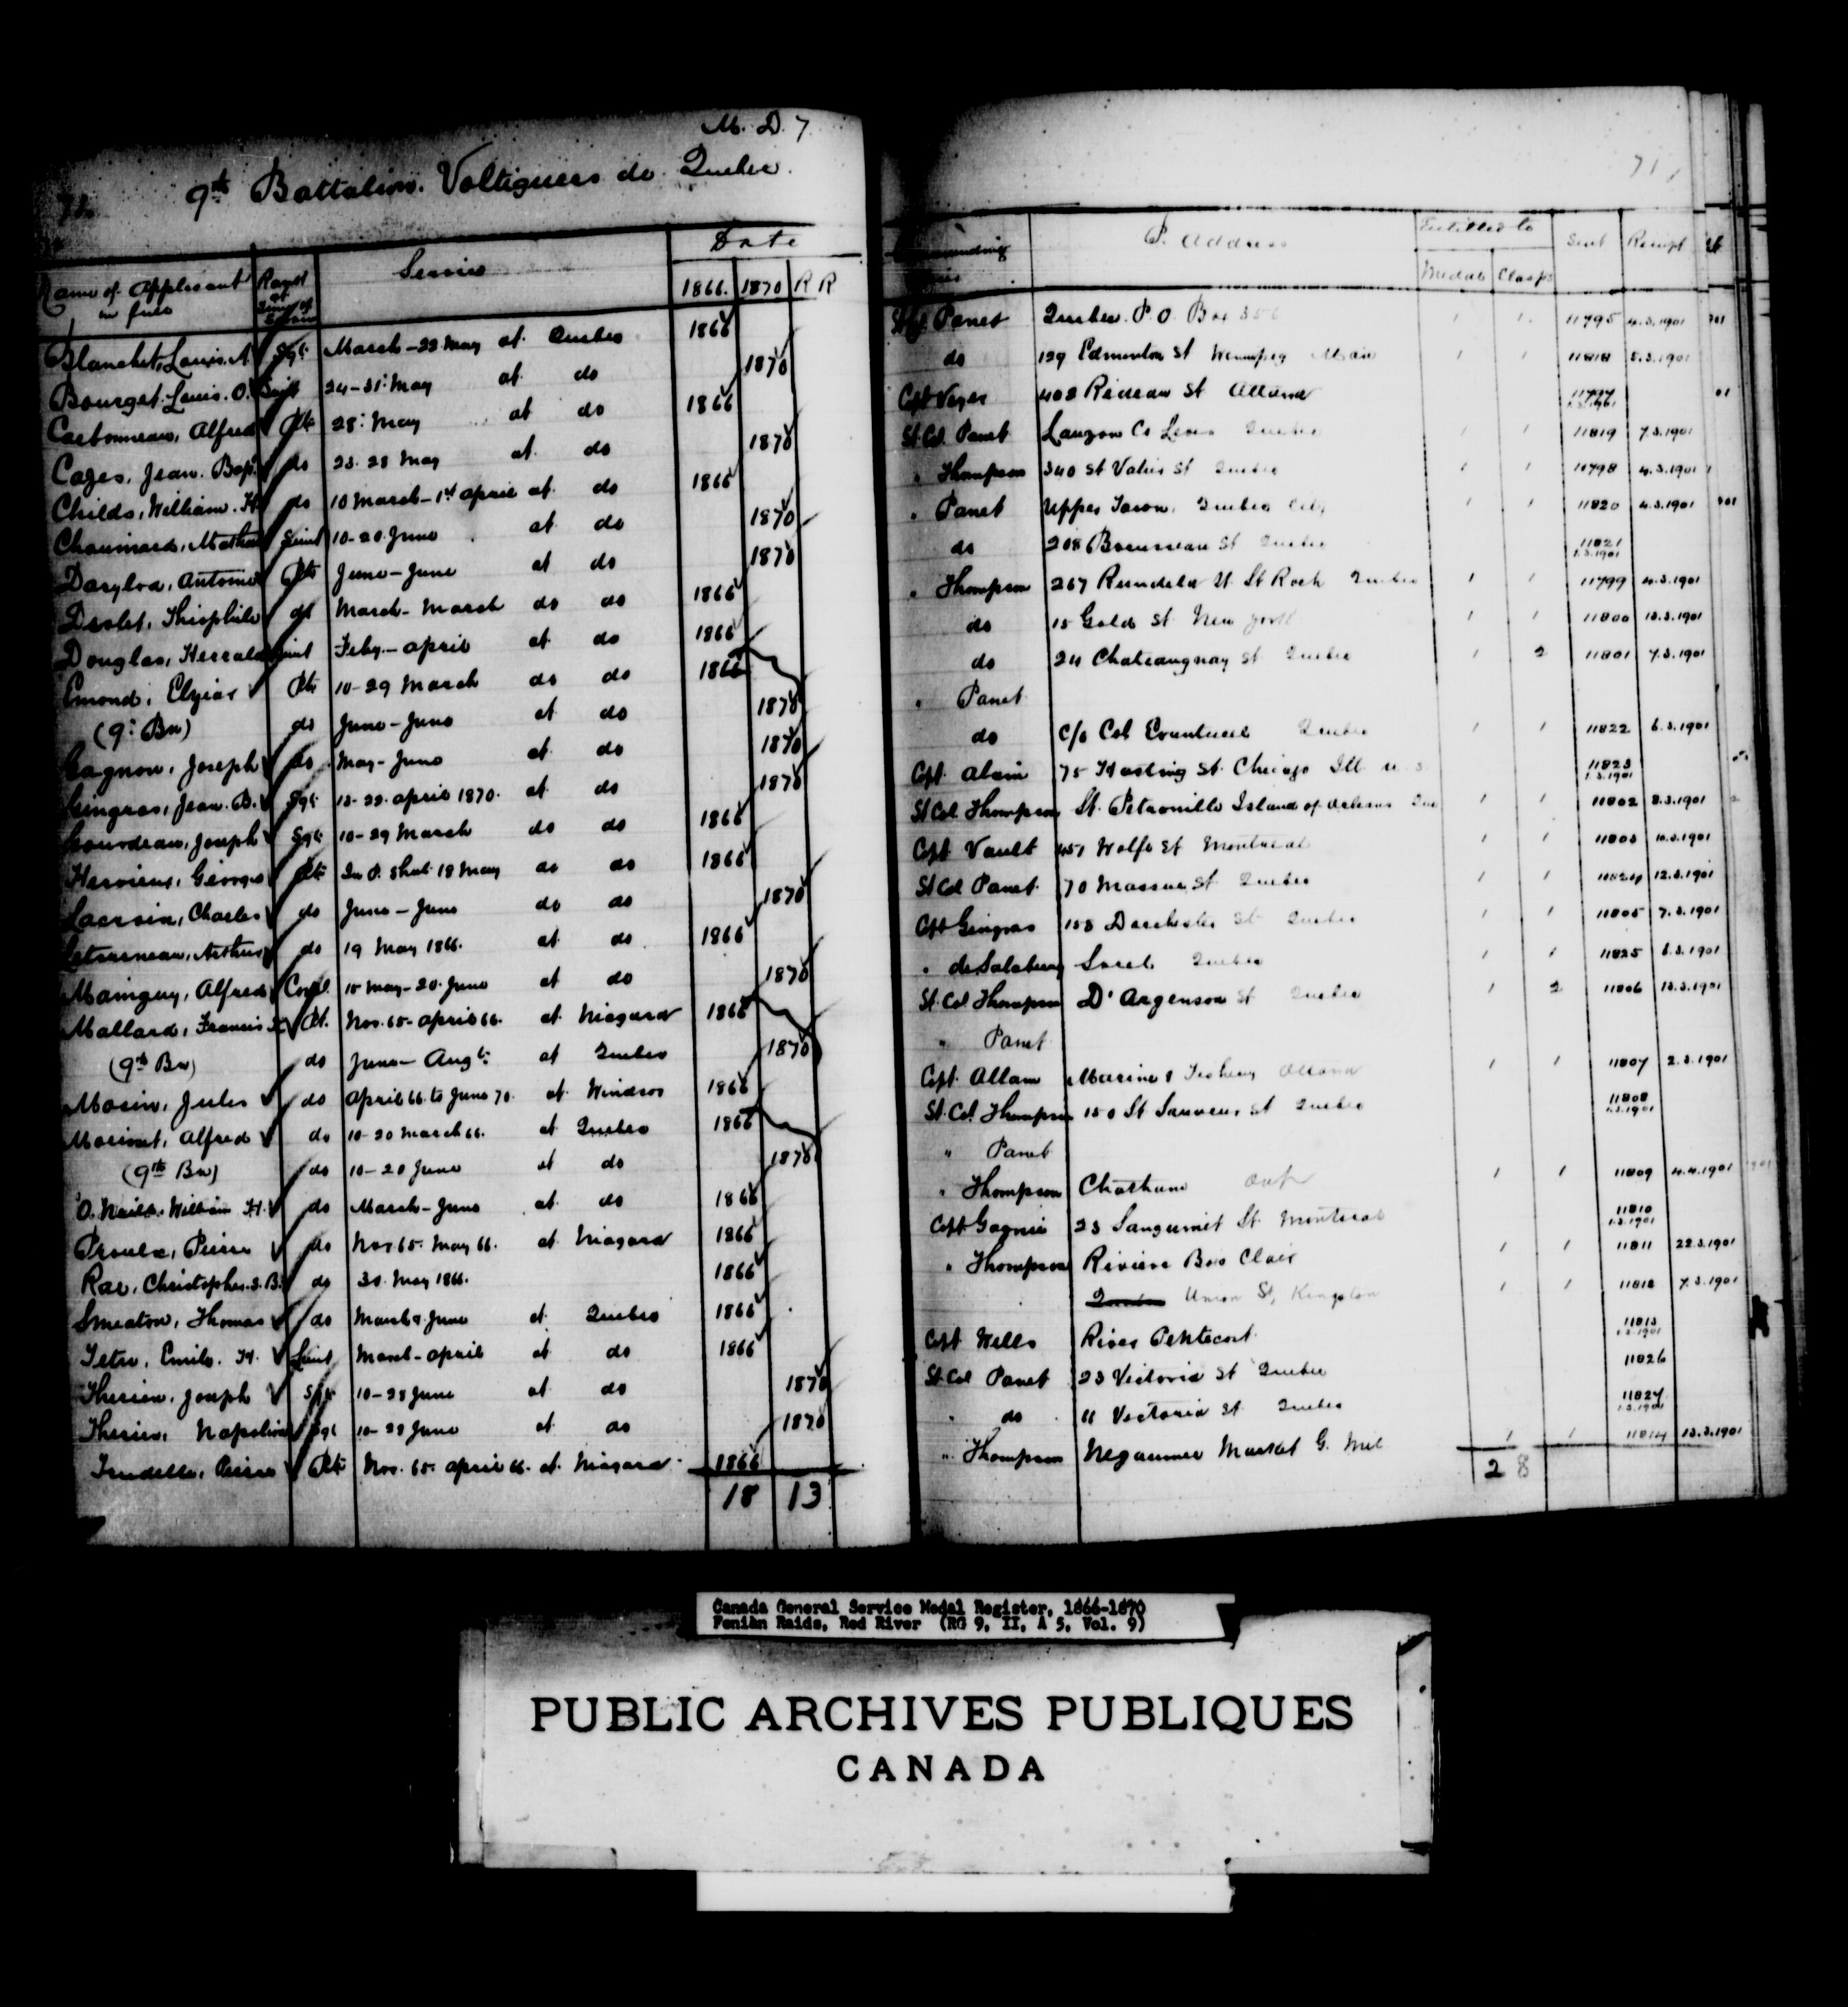 M. D. 7
9th Battalion. Voltiguers de Quebec.
71
Name of Applicant in full Rank at Service Date 1866. 1870 R R P. Address Entitled to Medals Clasps Sent Receipt
Blanchet, Louis. A Sgt. March - 22 May at Quebec 1866 Lt Col Panet Quebec. P.O. Box 356 1 1 11795 4.3.1901
Bourget. Louis. O. 24-31st May at do 1870 do 129 Edmonton St Winnipeg Man 1 1 11818 5.3.1901
Carbonneau, Alfred Pte 28th May at do 1866 Capt 408 Rideau St Ottawa
Cazes, Jean. Bapt. do 23-28 May at do 1870 Lt. Col. Panet Lauzon Co Levis Quebec 1 1 11819 7.3.1901
Childs, William. H. do 10 March - 1st April at do 1866 " Thompson 340 St Valier St Quebec 1 1 11798 4.3.1901
Chouinard, Mathias Lieut 10-20 June at do 1870 " Panet Upper Town, Quebec City 1 1 11820 4.3.1901
Antoine Pte June - June at do 1870 do 208 St Quebec 11821 1.3.1901
Drolet, Theophile do March - March do do 1866 " Thompson 267 St Roch Quebec 1 1 11799 4.3.1901
Douglas, Lieut Feby. - April at do 1866 do 15 Gold St New York 1 1 11800 13.3.1901
Emond, Elzear Pte 10-29 March do do 1866 do 24 Chateauguay St Quebec 1 2 11801 7.3.1901
(9th Bn) do June - June at do 1870 " Panet
Gagnon, Joseph do May - June at do 1870 do C/o Col Evanturel Quebec 1 1 11822 6.3.1901
Gingras, Jean. B. Sgt. 13-22 April 1870. at do 1870 Capt. Alain 75 Hasting St. Chicago Ill. U.S 11823 1.3.1901
Gourdeau, Joseph Sgt 10-29 March do do 1866 Lt Col Thompson St. Petronille Island of Orleans Que 1 1 11802 8.3.1901
Hervieux, Georges Pte 18 May do do 1866 Capt Vault 451 Wolfe St Montreal 1 1 11803
Lacroix, Charles do June - June do do 1870 Lt Col Panet 70 Massue St Quebec 1 1 11824 12.3.1901
Letourneau, Arthur do 19 May 1866. at do 1866 Capt Gingras 158 Dorchester St Quebec 1 1 11805 7.3.1901
Mainguy, Alfred Corpl. 15 May - 20 June at do 1870 " de Salaberry Sorel Quebec 1 1 11825 6.3.1901
Mallard, Francis Pt. Nov. 65 - April 66. at Niagara 1866 Lt. Col Thompson D'Argenson St Quebec 1 2 11806 13.3.1901
(9th Bn) do June - Augt. at Quebec 1870 " Panet
Morin, Jules do April 66 to June 70. at Windsor 1866 Capt. Allan Marine & Fishery Ottawa 1 1 11807 2.3.1901
Alfred do 10-20 March 66. at Quebec 1866 Lt. Col. Thompson 150 St Sauveur St Quebec 11808 1.3.1901
(9th Bn) do 10-20 June at do 1870 " Panet
O'Neill. William H. do March - June at do 1866 " Thompson Chatham Ont 1 1 11809 4.4.1901
Proulx, Pierre do Nov 65. May 66. at Niagara 1866 Capt Gagnier 23 Sanguinet St. Montreal 11810 1.3.1901
Rae, Christopher. S. B. do 30. May 1866. 1866 " Thompson Riviere Bois Clair 1 1 11811 22.3.1901
Smeaton, Thomas do March & June at Quebec 1866 Union St, Kingston 1 1 11812 7.3.1901
Tetu, Emile. H. Lieut March - April at do 1866 Capt Wells River Pentecost 11813 1.3.1901
Therien, Joseph Sgt 10-28 June at do 1870 Lt Col Panet 23 Victoria St Quebec 11826
Therien, Napoleon Sgt 10-28 June at do 1870 " do 11 Victoria St Quebec 11827 1.3.1901
Trudelle, Pierre Pte Nov. 65. April 66. at Niagara 1866 " Thompson Negaunee Market G. Mich 1 1 11814 13.3.1901
18 13 28
Canada General Service Medal Register, 1866-1870
Fenian Raids, Red River (RG 9, II, A 5, Vol. 9)
PUBLIC ARCHIVES PUBLIQUES
CANADA